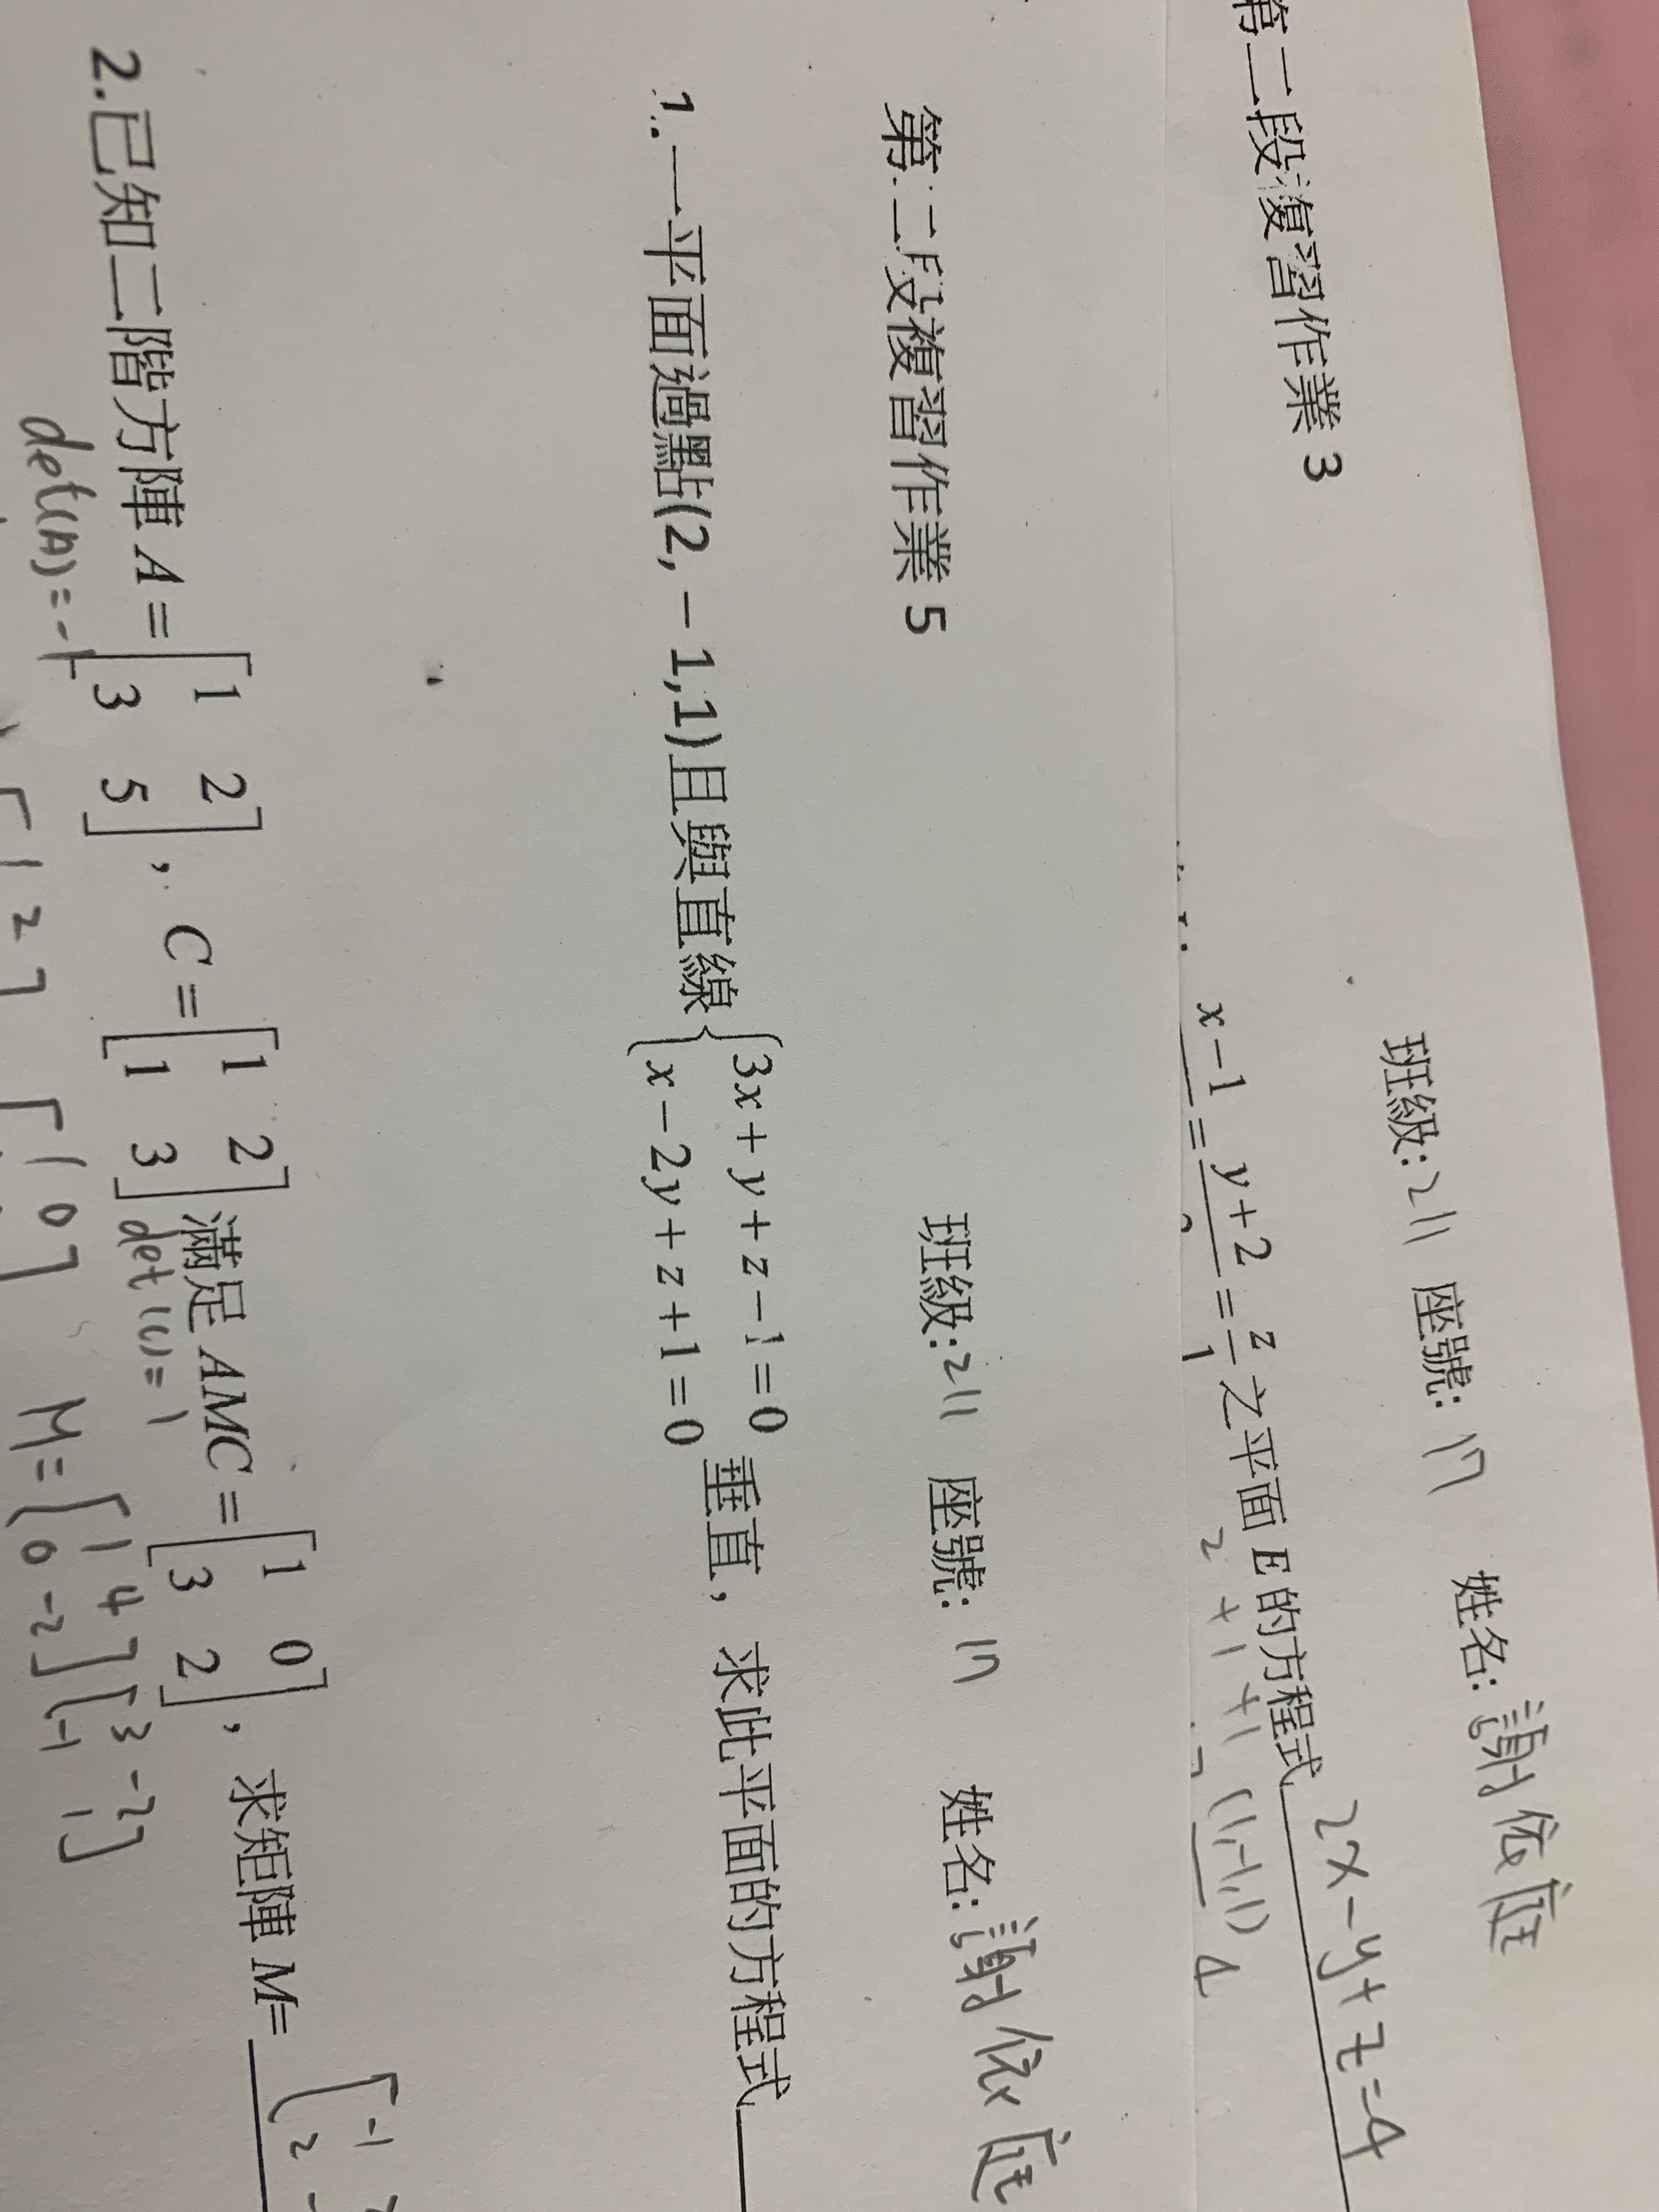 第二段復習作業 3 班級:211 座號: 17 姓名: 謝依庭
x−1 = y+2 = z/1 之平面 E 的方程式 2x−y+z=4
2 +1 +1 (1,-1,1) 4
第二段複習作業 5 班級:211 座號: 17 姓名: 謝依庭
1. 一平面過點(2,−1,1)且與直線{3x+y+z−1=0
x−2y+z+1=0 垂直，求此平面的方程式
2.已知二階方陣 A=[1 2
3 5], C=[1 2
1 3]滿足 AMC=[1 0
3 2]，求矩陣 M= [-1
2
det(A)=-1 det(C)=1
[1 2] [1 0] M=[1 4
0 -2][3 -2
-1 1]